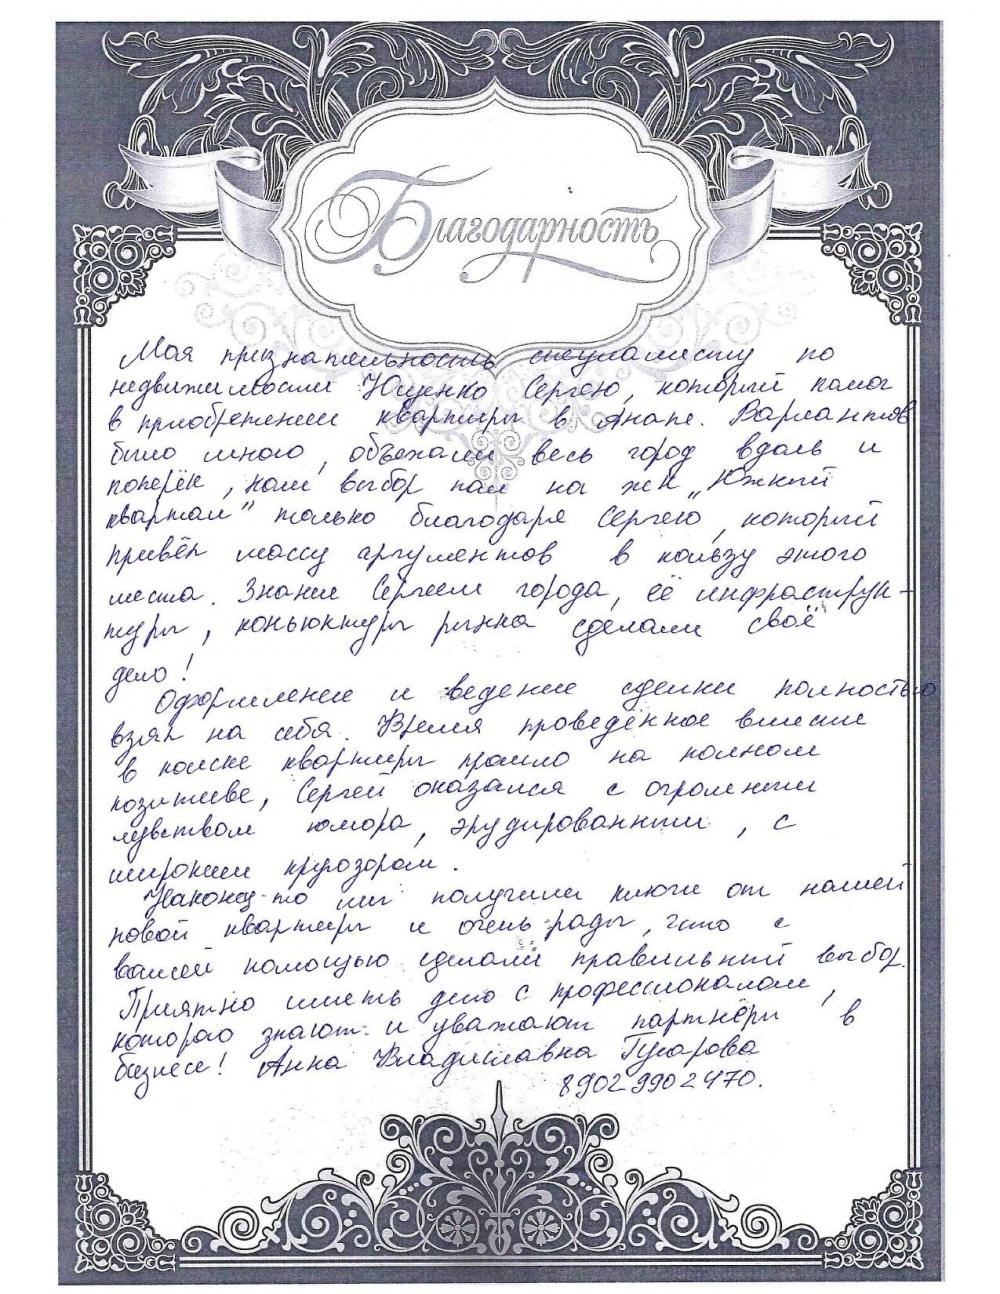 Благодарность
Моя признательность специалисту по
недвижимости Ющенко Сергею, который помог
в приобретении квартиры в Анапе. Вариантов
было много, объехали весь город вдоль и
поперёк, наш выбор пал на жк „Южный
квартал" только благодаря Сергею, который
привёл массу аргументов в пользу этого
места. Знание Сергеем города, её инфраструк-
туры, коньюктуры рынка сделали своё
дело!
Оформление и ведение сделки полностью
взял на себя. Время проведённое вместе
в поиске квартиры прошло на полном
позитиве, Сергей оказался с огромным
чувством юмора, эрудированным, с
широким кругозором.
Наконец-то мы получили ключи от нашей
новой квартиры и очень рады, что с
вашей помощью сделали правильный выбор.
Приятно иметь дело с профессионалом,
которого знают и уважают партнёры в
бизнесе! Анна Владиславна
89029902470.